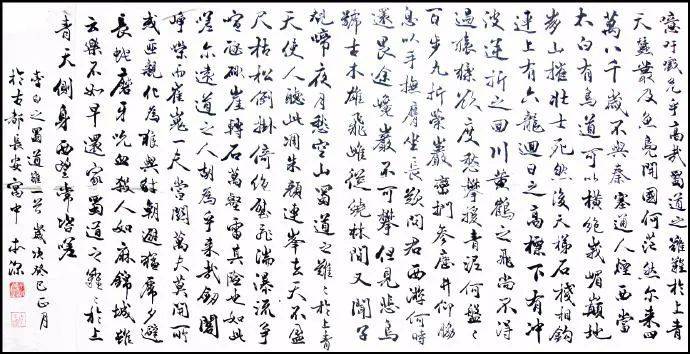 噫吁嚱危乎高哉蜀道之難難於上青
天蠶叢及魚鳧開國何茫然爾來四
萬八千歲不與秦塞通人煙西當
太白有鳥道可以橫絕峨嵋巔地
崩山摧壯士死然後天梯石棧相鉤
連上有六龍迴日之高標下有冲
波逆折之回川黃鶴之飛尚不得
過猿猱欲度愁攀援青泥何盤〻
百步九折縈巖巒捫參歷井仰脇
息以手撫膺坐長歎問君西遊何時
還畏途巉巖不可攀但見悲鳥
號古木雄飛雌從繞林間又聞子
規啼夜月愁空山蜀道之難〻於上青
天使人聽此凋朱顏連峯去天不盈
尺枯松倒掛倚絕壁飛湍瀑流爭
喧豗砯崖轉石萬壑雷其險也如此
嗟爾遠道之人胡為乎來哉劍閣
崢嶸而崔嵬一夫當關萬夫莫開所
或匪親化為狼與豺朝避猛虎夕避
長蛇磨牙吮血殺人如麻錦城雖
云樂不如早還家蜀道之難〻於上
青天側身西望常咨嗟
李白之蜀道難歲次癸巳正月
於古都長安寓中